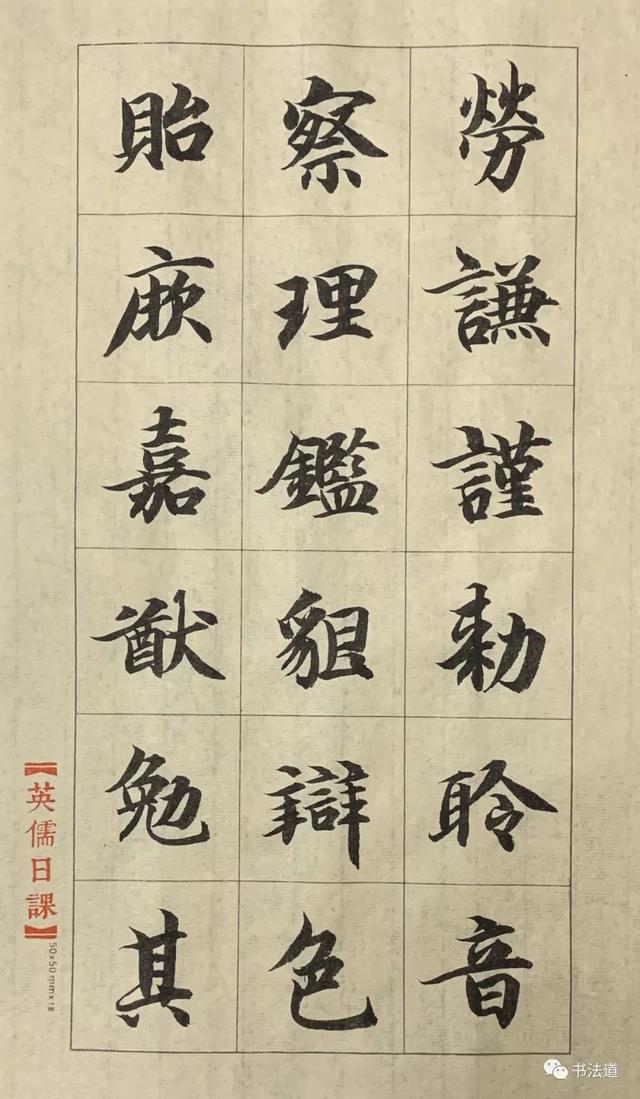 勞謙謹勅聆音
察理鑑貌辯色
貽厥嘉猷勉其
【英儒日課】
50×50mm×18
书法道